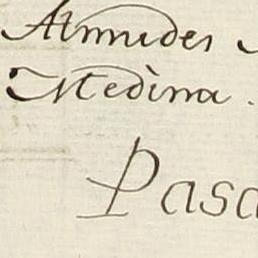 Atmudes
Medina.
Pasa